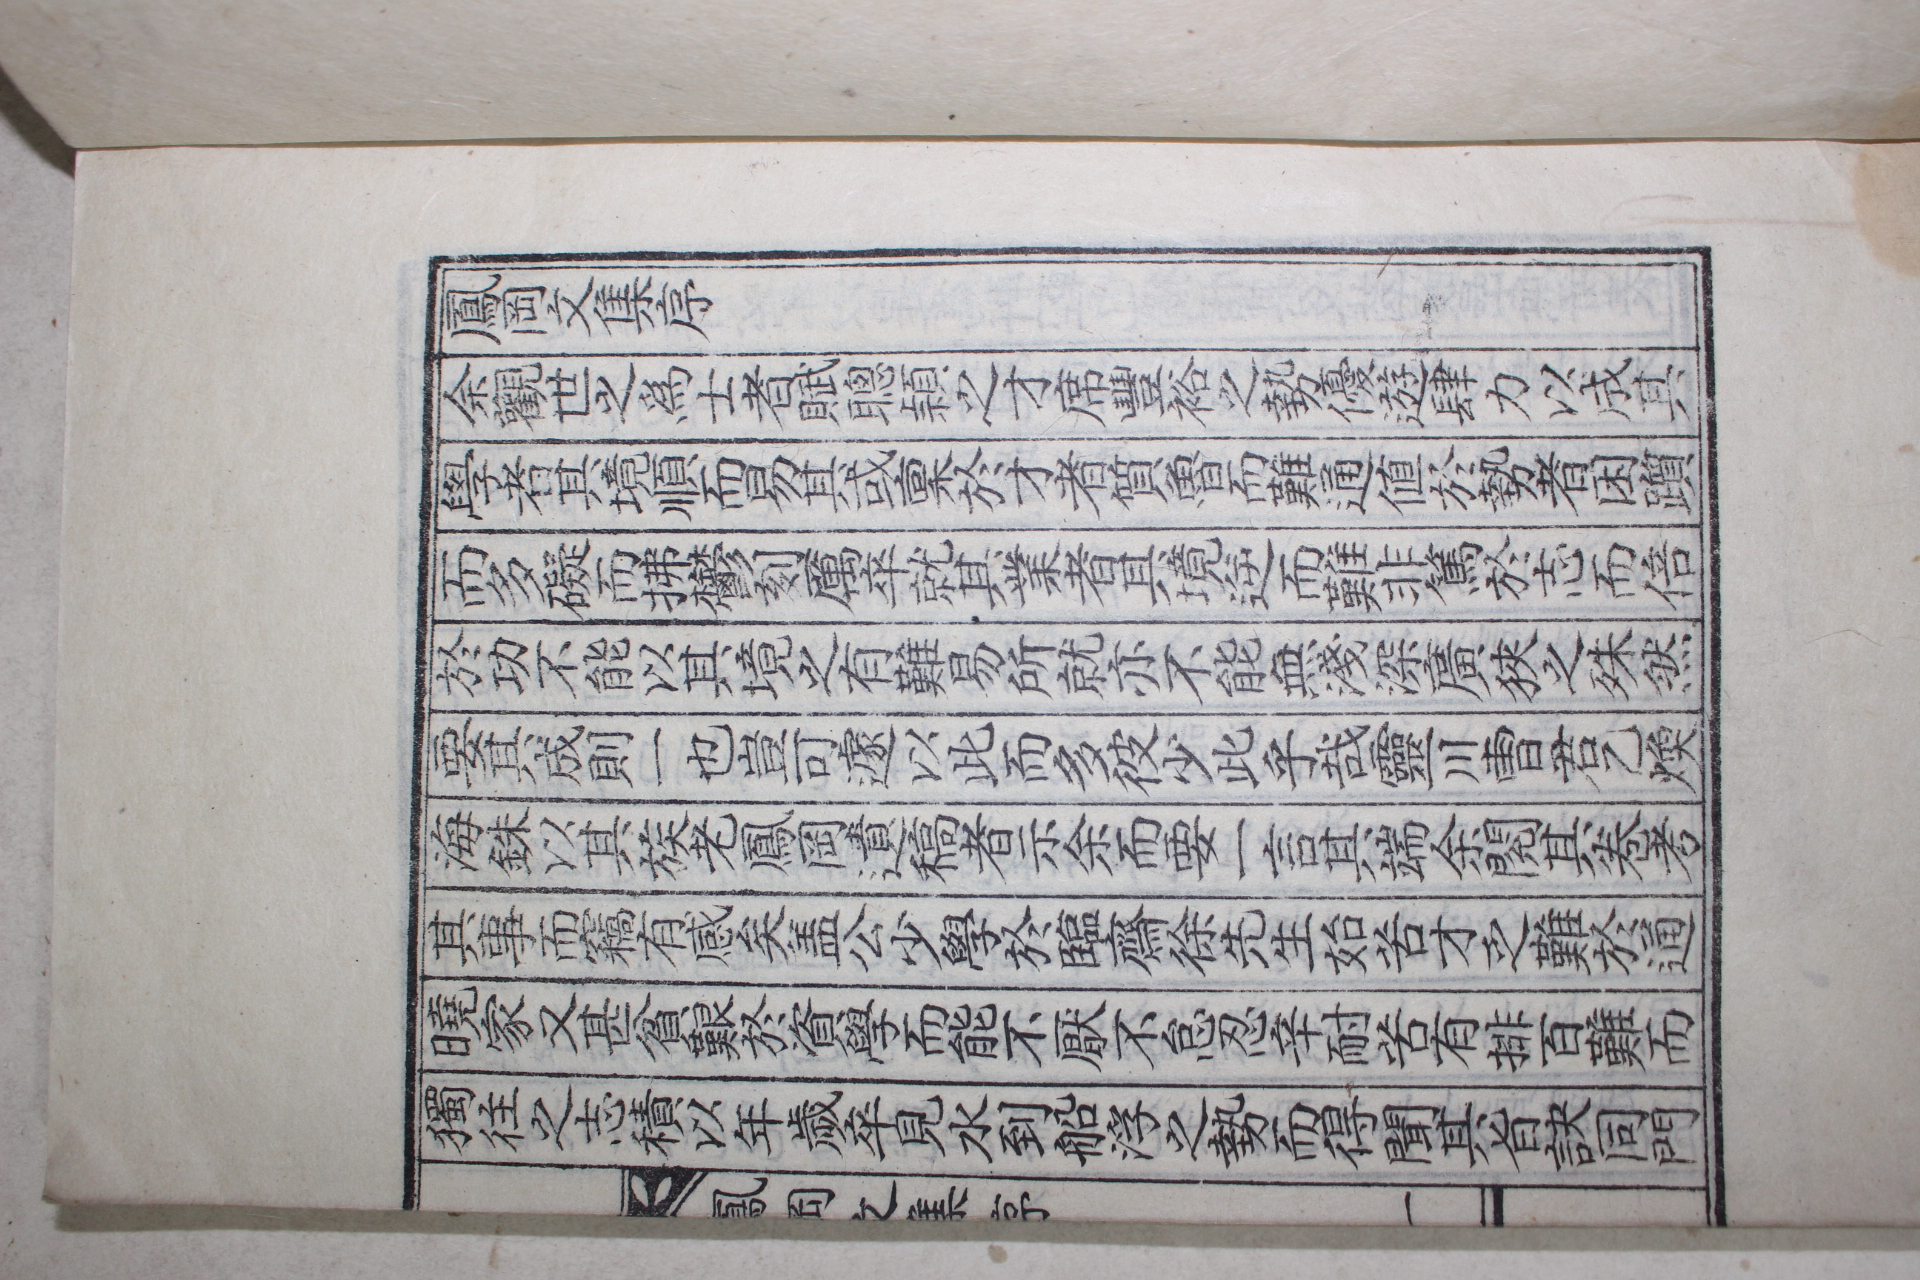 鳳岡文集序
余觀世之爲士者賦聰頴之才席豐裕之勢優遊肆力以成其
學者其境順而易其或稟於才者質魯而難通値於勢者困躓
而多礙而拂鬱刻厲卒就其業者其境逆而難非篤於志而倍
於功不能以其境之有難易所就亦不能無淺深廣狹之殊然
要其成則一也豈可遽以此而多彼少此乎哉靈川曺君乙煥
海銖以其族老鳳岡遺稿者示余而要一言其端余閱其卷考
其事而竊有感矣盖公少學於臨齋徐先生始苦才乏難於通
曉家又甚貧艱於資學而能不厭不怠忍辛耐苦有排百難而
獨往之志積以年歲卒見水到船浮之勢而得聞其旨訣同門
鳳岡文集 序 一